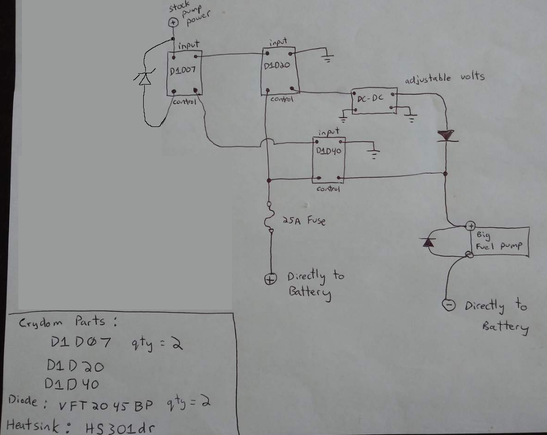 stock
pump
power
+
input
D1D07
control
input
D1D20
control
DC-DC
adjustable volts
input
D1D40
control
25A Fuse
+ Directly to
Battery
+
Big
Fuel pump
- Directly to
Battery
Crydom Parts:
D1D07 qty = 2
D1D20
D1D40
Diode: VFT2045BP qty = 2
Heatsink: HS301dr